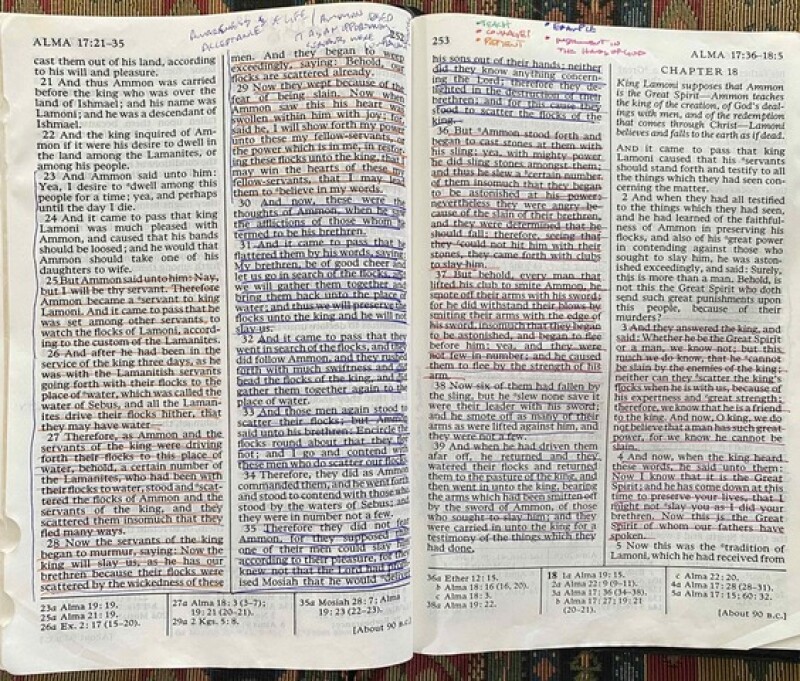 ACCEPTANCE
AMMON USED
252
ALMA 17:21–35
cast them out of his land, according
to his will and pleasure.
21 And thus Ammon was carried
before the king who was over the
land of Ishmael; and his name was
Lamoni; and he was a descendant of
Ishmael.
22 And the king inquired of Am-
mon if it were his desire to dwell in
the land among the Lamanites, or
among his people.
23 And Ammon said unto him:
Yea, I desire to ᵃdwell among this
people for a time; yea, and perhaps
until the day I die.
24 And it came to pass that king
Lamoni was much pleased with
Ammon, and caused that his bands
should be loosed; and he would that
Ammon should take one of his
daughters to wife.
25 But Ammon said unto him: Nay,
but I will be thy servant. Therefore
Ammon became a ᵃservant to king
Lamoni. And it came to pass that he
was set among other servants, to
watch the flocks of Lamoni, accord-
ing to the custom of the Lamanites.
26 And after he had been in the
service of the king three days, as he
was with the Lamanitish servants
going forth with their flocks to the
place of ᵃwater, which was called the
water of Sebus, and all the Laman-
ites drive their flocks hither, that
they may have water—
27 Therefore, as Ammon and the
servants of the king were driving
forth their flocks to this place of
water, behold, a certain number of
the Lamanites, who had been with
their flocks to water, stood and ᵃscat-
tered the flocks of Ammon and the
servants of the king, and they
scattered them insomuch that they
fled many ways.
28 Now the servants of the king
began to murmur, saying: Now the
king will slay us, as he has our
brethren because their flocks were
scattered by the wickedness of these
men. And they began to weep
exceedingly, saying: Behold, our
flocks are scattered already.
29 Now they wept because of the
fear of being slain. Now when
Ammon saw this his heart was
swollen within him with joy; for,
said he, I will show forth my power
unto these my fellow-servants, or
the power which is in me, in restor-
ing these flocks unto the king, that I
may win the hearts of these my
fellow-servants, that I may lead
them to ᵃbelieve in my words.
30 And now, these were the
thoughts of Ammon, when he saw
the afflictions of those whom he
termed to be his brethren.
31 And it came to pass that he
flattered them by his words, saying:
My brethren, be of good cheer and
let us go in search of the flocks, and
we will gather them together and
bring them back unto the place of
water; and thus we will preserve the
flocks unto the king and he will not
slay us.
32 And it came to pass that they
went in search of the flocks, and they
did follow Ammon, and they rushed
forth with much swiftness and did
head the flocks of the king, and did
gather them together again to the
place of water.
33 And those men again stood to
scatter their flocks; but Ammon
said unto his brethren: Encircle the
flocks round about that they flee
not; and I go and contend with
these men who do scatter our flocks.
34 Therefore, they did as Ammon
commanded them, and he went forth
and stood to contend with those who
stood by the waters of Sebus; and
they were in number not a few.
35 Therefore they did not fear
Ammon, for they supposed that
one of their men could slay him
according to their pleasure, for they
knew not that the Lord had prom-
ised Mosiah that he would ᵃdeliver
23a Alma 19: 19.
25a Alma 21: 19.
26a Ex. 2: 17 (15–20).
27a Alma 18: 3 (3–7);
19: 21 (20–21).
29a 2 Kgs. 5: 8.
35a Mosiah 28: 7; Alma
19: 23 (22–23).
[About 90 B.C.]
• TEACH
• PATIENT
• EXAMPLE
• INSTRUMENT IN
THE HANDS OF GOD
253
ALMA 17:36–18:5
his sons out of their hands; neither
did they know anything concern-
ing the Lord; therefore they de-
lighted in the destruction of their
brethren; and for this cause they
stood to scatter the flocks of the
king.
36 But ᵃAmmon stood forth and
began to cast stones at them with
his sling; yea, with mighty power
he did sling stones amongst them;
and thus he slew a ᵇcertain number
of them insomuch that they began
to be astonished at his power;
nevertheless they were angry be-
cause of the slain of their brethren,
and they were determined that he
should fall; therefore, seeing that
they ᶜcould not hit him with their
stones, they came forth with clubs
to slay him.
37 But behold, every man that
lifted his club to smite Ammon, he
smote off their arms with his sword;
for he did withstand their blows by
smiting their arms with the edge of
his sword, insomuch that they began
to be astonished, and began to flee
before him; yea, and they were
not few in number; and he caused
them to flee by the strength of his
arm.
38 Now six of them had fallen by
the sling, but he ᵃslew none save it
were their leader with his sword;
and he smote off as many of their
arms as were lifted against him, and
they were not a few.
39 And when he had driven them
afar off, he returned and they
watered their flocks and returned
them to the pasture of the king, and
then went in unto the king, bearing
the arms which had been smitten off
by the sword of Ammon, of those
who sought to slay him; and they
were carried in unto the king for a
testimony of the things which they
had done.
CHAPTER 18
King Lamoni supposes that Ammon
is the Great Spirit—Ammon teaches
the king of the creation, of God's deal-
ings with men, and of the redemption
that comes through Christ—Lamoni
believes and falls to the earth as if dead.
AND it came to pass that king
Lamoni caused that his ᵃservants
should stand forth and testify to all
the things which they had seen con-
cerning the matter.
2 And when they had all testified
to the things which they had seen,
and he had learned of the faithful-
ness of Ammon in preserving his
flocks, and also of his ᵃgreat power
in contending against those who
sought to slay him, he was aston-
ished exceedingly, and said: Surely,
this is more than a man. Behold, is
not this the Great Spirit who doth
send such great punishments upon
this people, because of their
murders?
3 And they answered the king, and
said: Whether he be the Great Spirit
or a man, we know not; but this
much we do know, that he ᵃcannot
be slain by the enemies of the king;
neither can they ᵇscatter the king's
flocks when he is with us, because of
his expertness and ᶜgreat strength;
therefore, we know that he is a friend
to the king. And now, O king, we do
not believe that a man has such great
power, for we know he cannot be
slain.
4 And now, when the king heard
these words, he said unto them:
Now I know that it is the Great
Spirit; and he has come down at this
time to preserve your lives, that I
might not ᵃslay you as I did your
brethren. Now this is the Great
Spirit of whom our fathers have
spoken.
5 Now this was the ᵃtradition of
Lamoni, which he had received from
36a Ether 12: 15.
b Alma 18: 16 (16, 20).
c Alma 18: 3.
38a Alma 19: 22.
18 1a Alma 19: 15.
2a Alma 22: 9 (9–11).
3a Alma 17: 36 (34–38).
b Alma 17: 27; 19: 21
(20–21).
c Alma 22: 20.
4a Alma 17: 28 (28–31).
5a Alma 17: 15; 60: 32.
[About 90 B.C.]